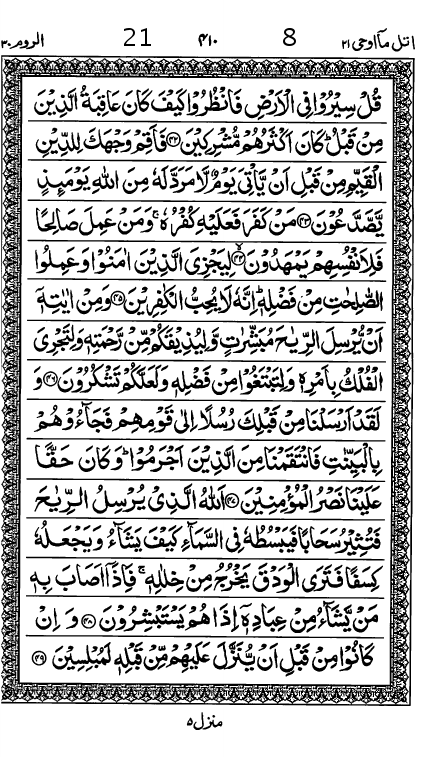 اتل مآاوحی ۲۱ 8 ۴۱۰ 21 الروم ۳۰
قُلْ سِيْرُوْا فِى الْاَرْضِ فَانْظُرُوْا كَيْفَ كَانَ عَاقِبَةُ الَّذِيْنَ
مِنْ قَبْلُ ؕ كَانَ اَكْثَرُهُمْ مُّشْرِكِيْنَ ﴿۴۲﴾ فَاَقِمْ وَجْهَكَ لِلدِّيْنِ
الْقَيِّمِ مِنْ قَبْلِ اَنْ يَّاْتِىَ يَوْمٌ لَّا مَرَدَّ لَهٗ مِنَ اللّٰهِ يَوْمَىِٕذٍ
يَّصَّدَّعُوْنَ ﴿۴۳﴾ مَنْ كَفَرَ فَعَلَيْهِ كُفْرُهٗ ۚ وَمَنْ عَمِلَ صَالِحًا
فَلِاَنْفُسِهِمْ يَمْهَدُوْنَ ۙ﴿۴۴﴾ لِيَجْزِىَ الَّذِيْنَ اٰمَنُوْا وَعَمِلُوا
الصّٰلِحٰتِ مِنْ فَضْلِهٖ ؕ اِنَّهٗ لَا يُحِبُّ الْكٰفِرِيْنَ ﴿۴۵﴾ وَمِنْ اٰيٰتِهٖۤ
اَنْ يُّرْسِلَ الرِّيٰحَ مُبَشِّرٰتٍ وَّلِيُذِيْقَكُمْ مِّنْ رَّحْمَتِهٖ وَلِتَجْرِىَ
الْفُلْكُ بِاَمْرِهٖ وَلِتَبْتَغُوْا مِنْ فَضْلِهٖ وَلَعَلَّكُمْ تَشْكُرُوْنَ ﴿۴۶﴾ وَ
لَقَدْ اَرْسَلْنَا مِنْ قَبْلِكَ رُسُلًا اِلٰى قَوْمِهِمْ فَجَآءُوْهُمْ
بِالْبَيِّنٰتِ فَانْتَقَمْنَا مِنَ الَّذِيْنَ اَجْرَمُوْا ؕ وَكَانَ حَقًّا
عَلَيْنَا نَصْرُ الْمُؤْمِنِيْنَ ﴿۴۷﴾ اَللّٰهُ الَّذِىْ يُرْسِلُ الرِّيٰحَ
فَتُثِيْرُ سَحَابًا فَيَبْسُطُهٗ فِى السَّمَآءِ كَيْفَ يَشَآءُ وَيَجْعَلُهٗ
كِسَفًا فَتَرَى الْوَدْقَ يَخْرُجُ مِنْ خِلٰلِهٖ ۚ فَاِذَاۤ اَصَابَ بِهٖ
مَنْ يَّشَآءُ مِنْ عِبَادِهٖۤ اِذَا هُمْ يَسْتَبْشِرُوْنَ ﴿۴۸﴾ وَ اِنْ
كَانُوْا مِنْ قَبْلِ اَنْ يُّنَزَّلَ عَلَيْهِمْ مِّنْ قَبْلِهٖ لَمُبْلِسِيْنَ ﴿۴۹﴾
منزل ۵